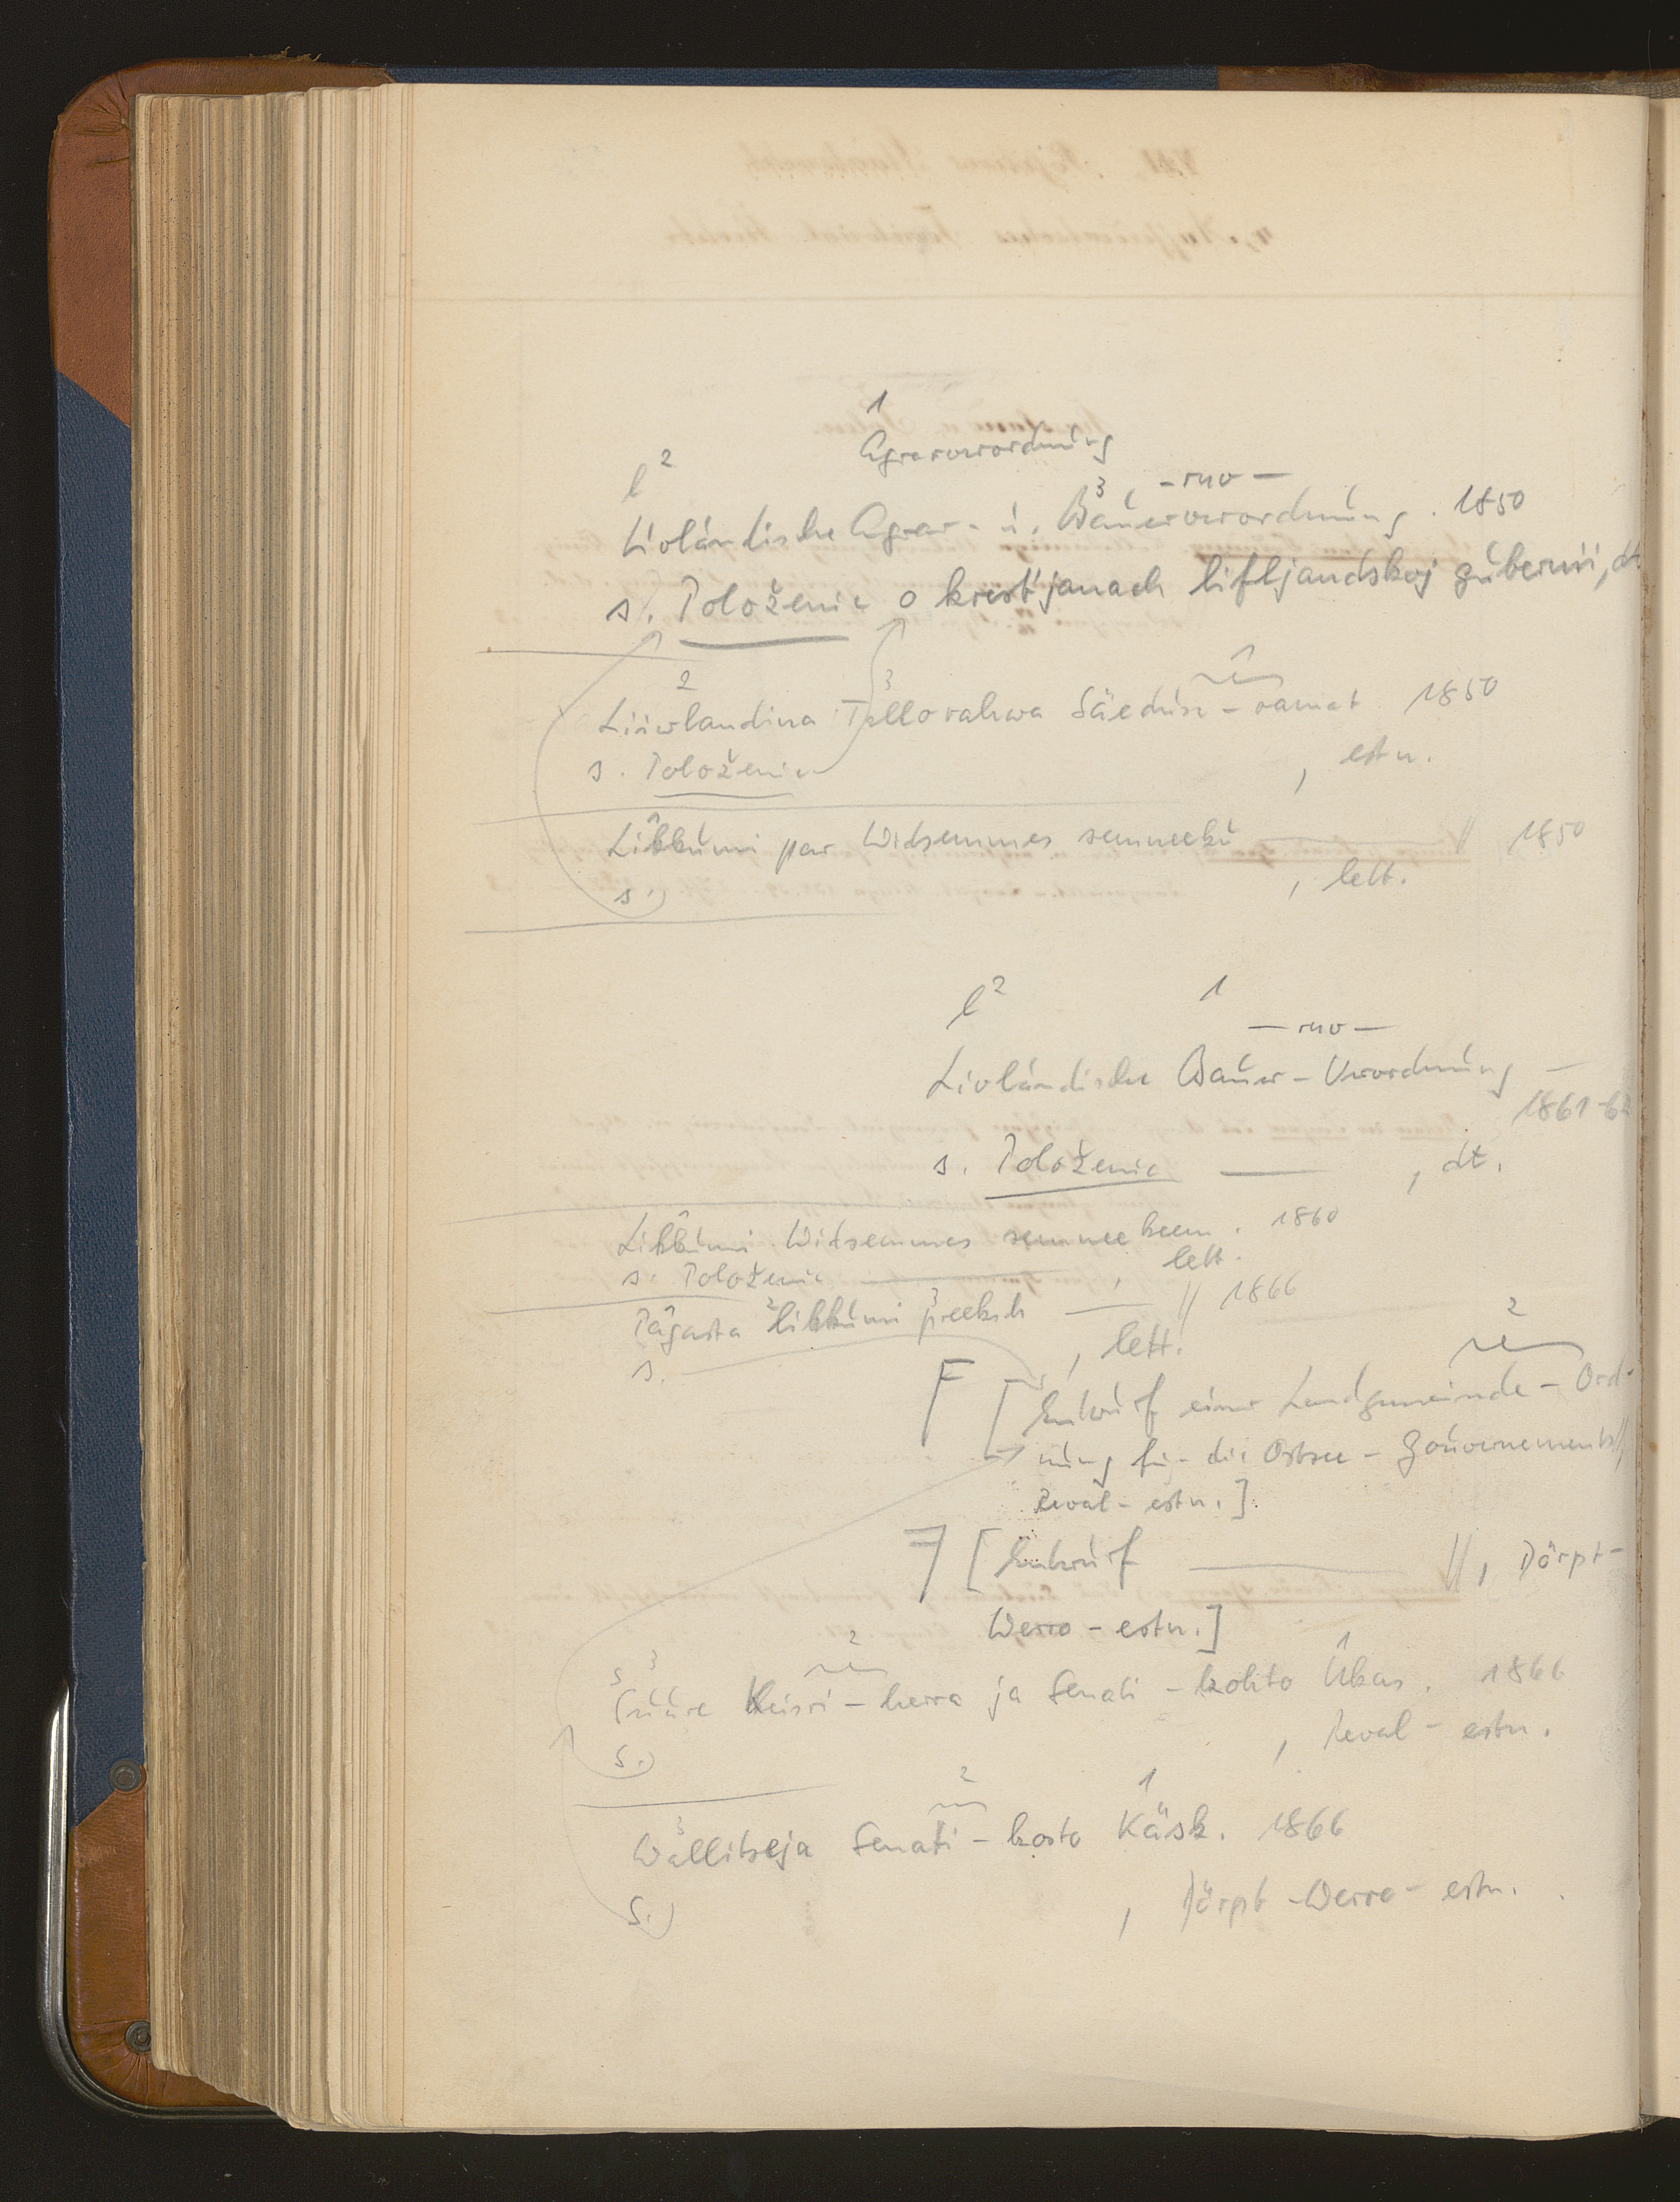 1
Agrarverordnung
l 2
3 - rno -
Livländische Agrar- u. Bauerverordnung. 1850
s. Položenie o krest'janach lifljandskoj gubernii, dt
2 3 1
Liiwlandina Tallorahwa Säeduse-ramat 1850
s. Položenie , estn.
Likkumi par Widsemmes semneeku — // 1850
s. , lett.
l 2 1
- rno -
Livländische Bauer-Verordnung —
1861-62
s. Položenie — , dt.
Likkumi Widsemmes semneekeem. 1860
s. Položenie — , lett.
2 3
Pagasta likkumi preeksch — // 1866
s. — , lett.
2
F [Entwurf einer Landgemeinde-Ord-
nung für die Ostsee-Gouvernements//,
Reval-estn.]
7 [Entwurf — //, Dörpt-
Werro-estn.]
s 3 2 1
Suure Keisri-herra ja Senati-kohto Ukas. 1866
s. , Reval-estn.
3 2 1
Wallitseja Senati-kosto Käsk. 1866
s. , Dörpt-Werro-estn.